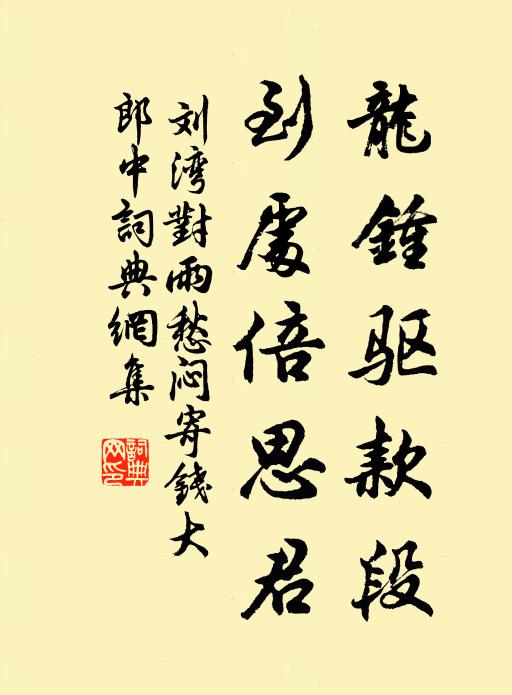 龍鍾驱款段
到處倍思君
刘湾對雨愁闷寄錢大
郎中詞典網集
詞典网印